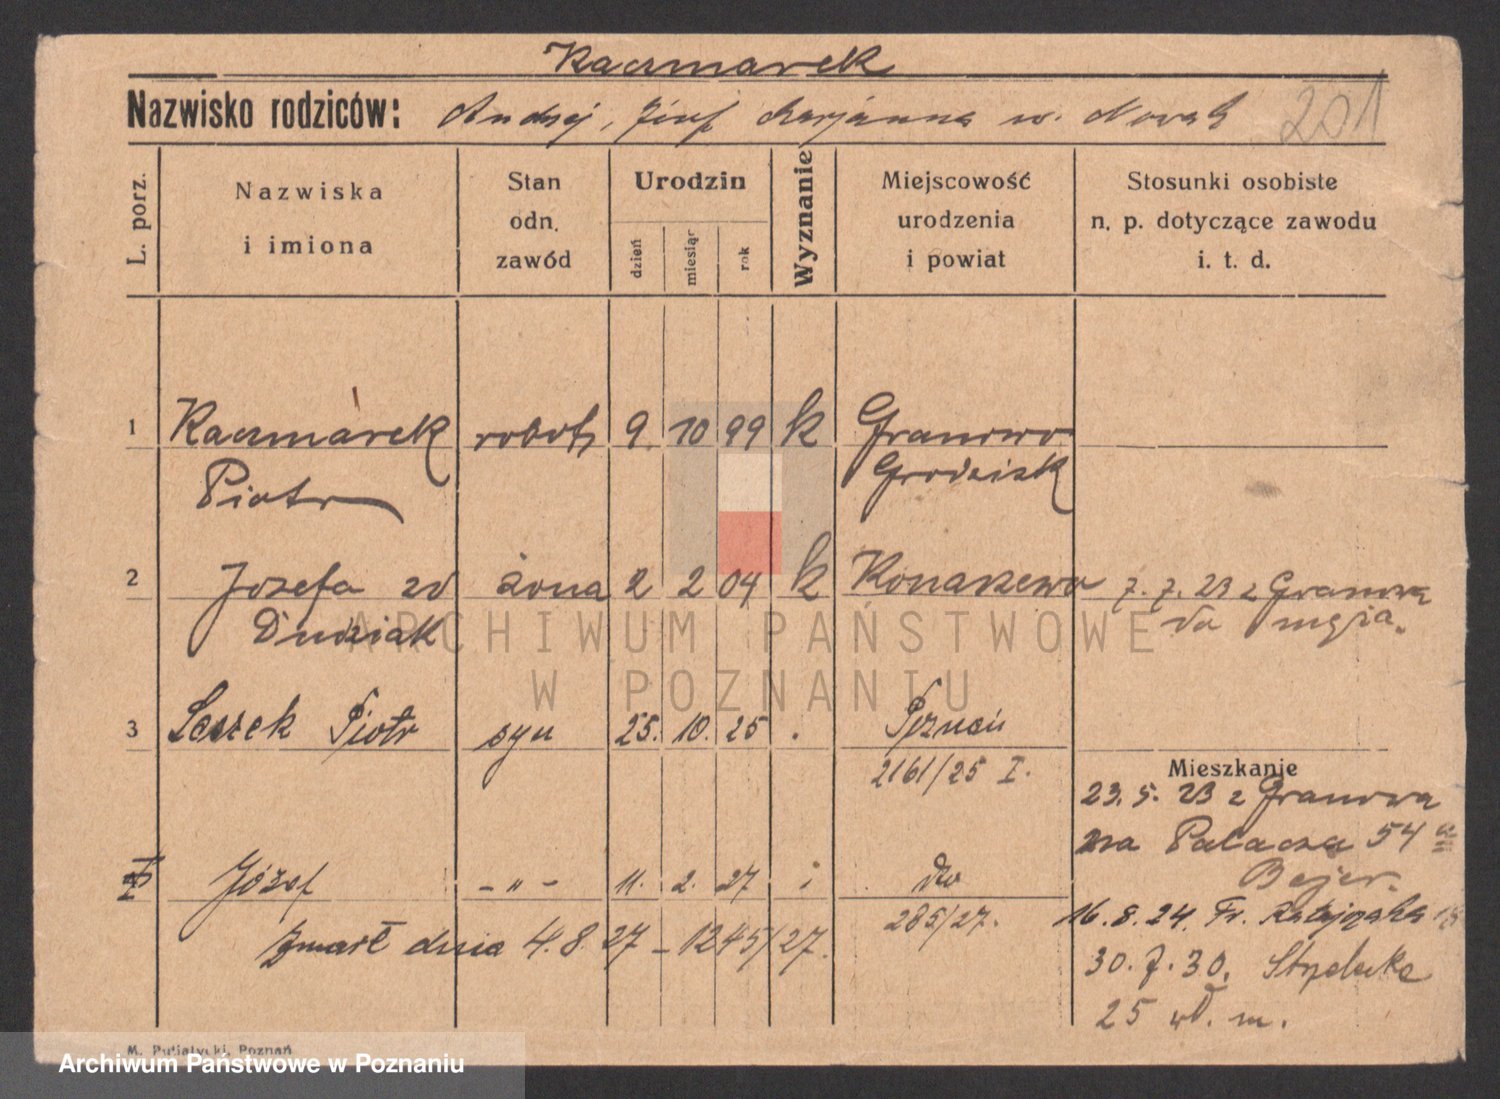 Kaczmarek
Nazwisko rodziców: Andrzej, Józef Marjanna w. Novak 201
L. porz.
Nazwiska i imiona
Stan odn. zawód
Urodzin
dzień miesiąc rok
Wyznanie
Miejscowość urodzenia i powiat
Stosunki osobiste n. p. dotyczące zawodu i. t. d.
1 Kaczmarek robotn 9. 10 99 k Granowo
Piotr Grodzisk
2 Józefa zd żona 2 2 04 k Konarzewo 7. 7. 23 z Granowa
Dudziak do męża.
ARCHIWUM PAŃSTWOWE
W POZNANIU
3 Leszek Piotr syn 25. 10. 25 . Poznań
2161/25 I.
Mieszkanie
23. 5. 23 z Granowa
na Palacza 54 u
Bejer.
Józef - " - 11. 2. 27 dto
285/27.
16. 8. 24. Fr. Ratajczaka
Zmarł dnia 4. 8. 27 - 1245/27.
30. 7. 30. Strzelecka
25 wł. m.
M. Putiatycki, Poznań
Archiwum Państwowe w Poznaniu